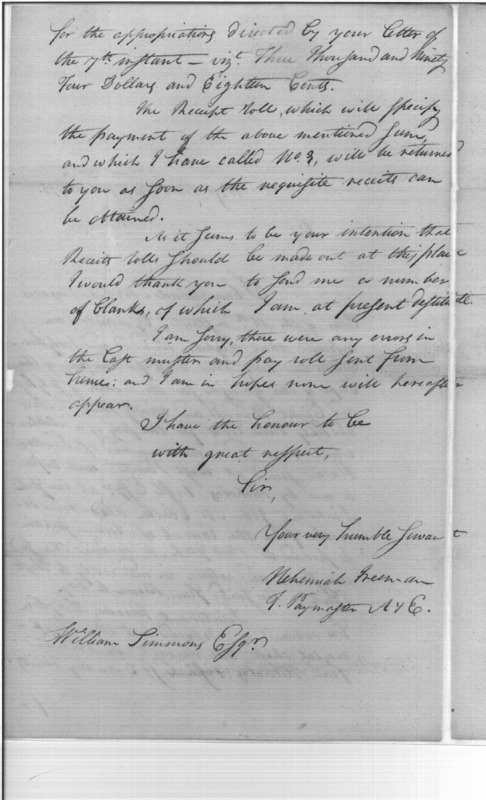 for the appropriations directed by your letter of
the 7th instant – vizt Three Thousand and Ninety
Four Dollars and Eighteen Cents.
The Receipt Rolls, which will specify
the payment of the above mentioned sum,
and which I have called No. 3, will be returned
to you as soon as the requisite receits can
be obtained.
As it seems to be your intention that
Receits rolls should be made out at this place
I would thank you to send me a number
of blanks, of which I am at present destitute.
I am sorry, there were any errors in
the last muster and pay rolls sent from
hence: and I am in hopes none will hereafter
appear.
I have the honour to be
with great respect,
Sir,
Your very humble Servant
Nehemiah Freeman
Paymaster A & E.
William Simmons Esqr.